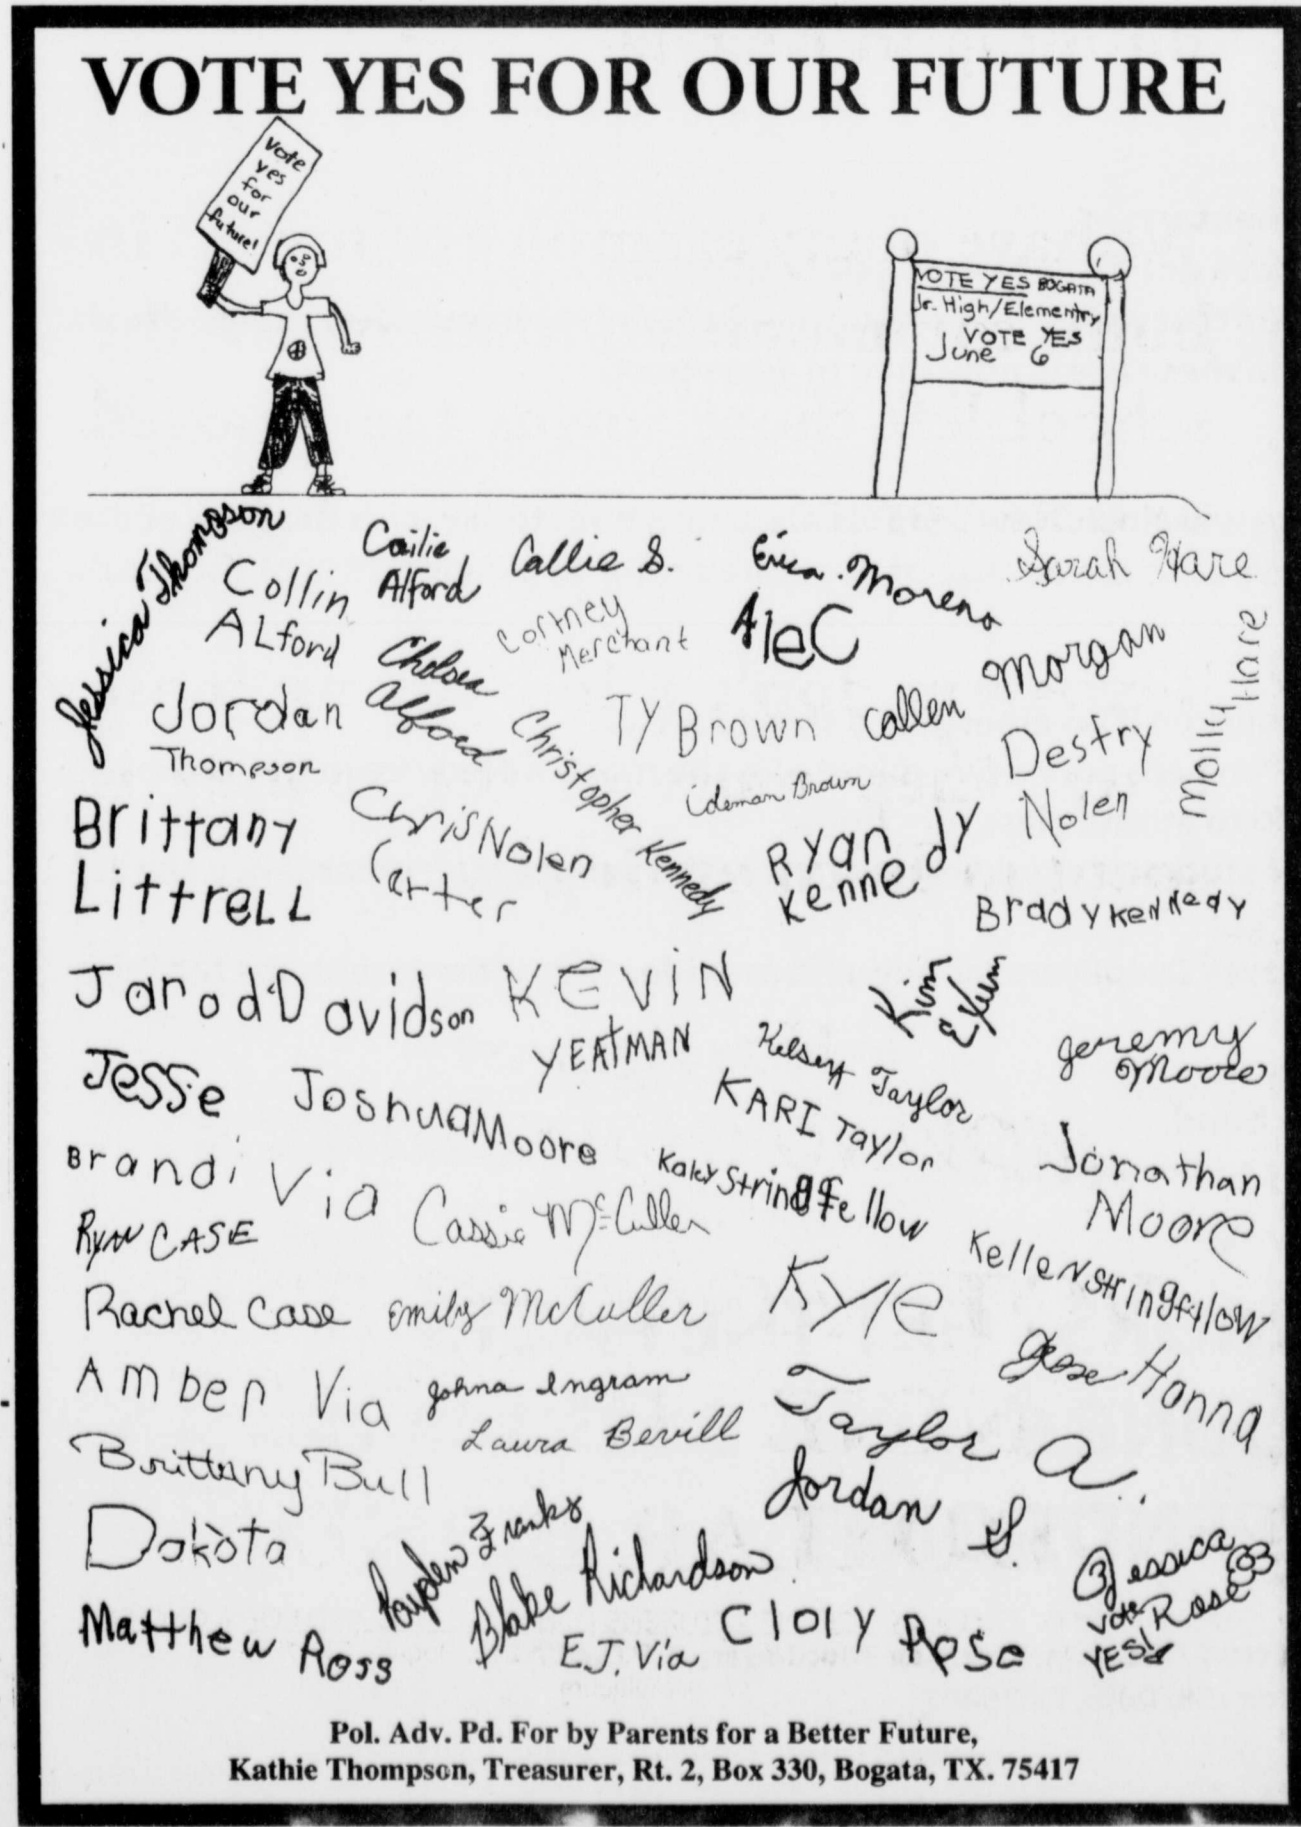 VOTE YES FOR OUR FUTURE
Vote
yes
for
our
future!
VOTE YES BOGATA
Jr. High/Elementry
VOTE YES
June 6
Jessica Thompson
Collin
ALford
Cailie
Alford
Callie S.
Erica Moreno
Sarah Hare
Cortney
Merchant
AleC
Morgan
Molly Hare
Chelsea
Alford
Jordan
Thompson
Christopher Kennedy
TY Brown
Callen
Destry
Nolen
Brown
Brittany
Littrell
Chris Nolen
Carter
Ryan
Kennedy
Brady Kennedy
Jarod Davidson
KEVIN
YEATMAN
Kim
Elum
Jeremy
Moore
Kelsey Taylor
KARI Taylor
Jesse
Joshua Moore
Jonathan
Moore
Brandi Via
Cassie McCuller
Stringfellow
RYAN CASE
Kellen Stringfellow
Rachel Case
Emily McCuller
Kyle
Jesse Hanna
Amber Via
Johna Ingram
Taylor A.
Laura Bevill
Brittany Bull
Jordan S.
Dakota
Payden Franks
Blake Richardson
Jessica
Rose
vote
YES!
Matthew Ross
E.J. Via
Cloly Rose
Pol. Adv. Pd. For by Parents for a Better Future,
Kathie Thompson, Treasurer, Rt. 2, Box 330, Bogata, TX. 75417